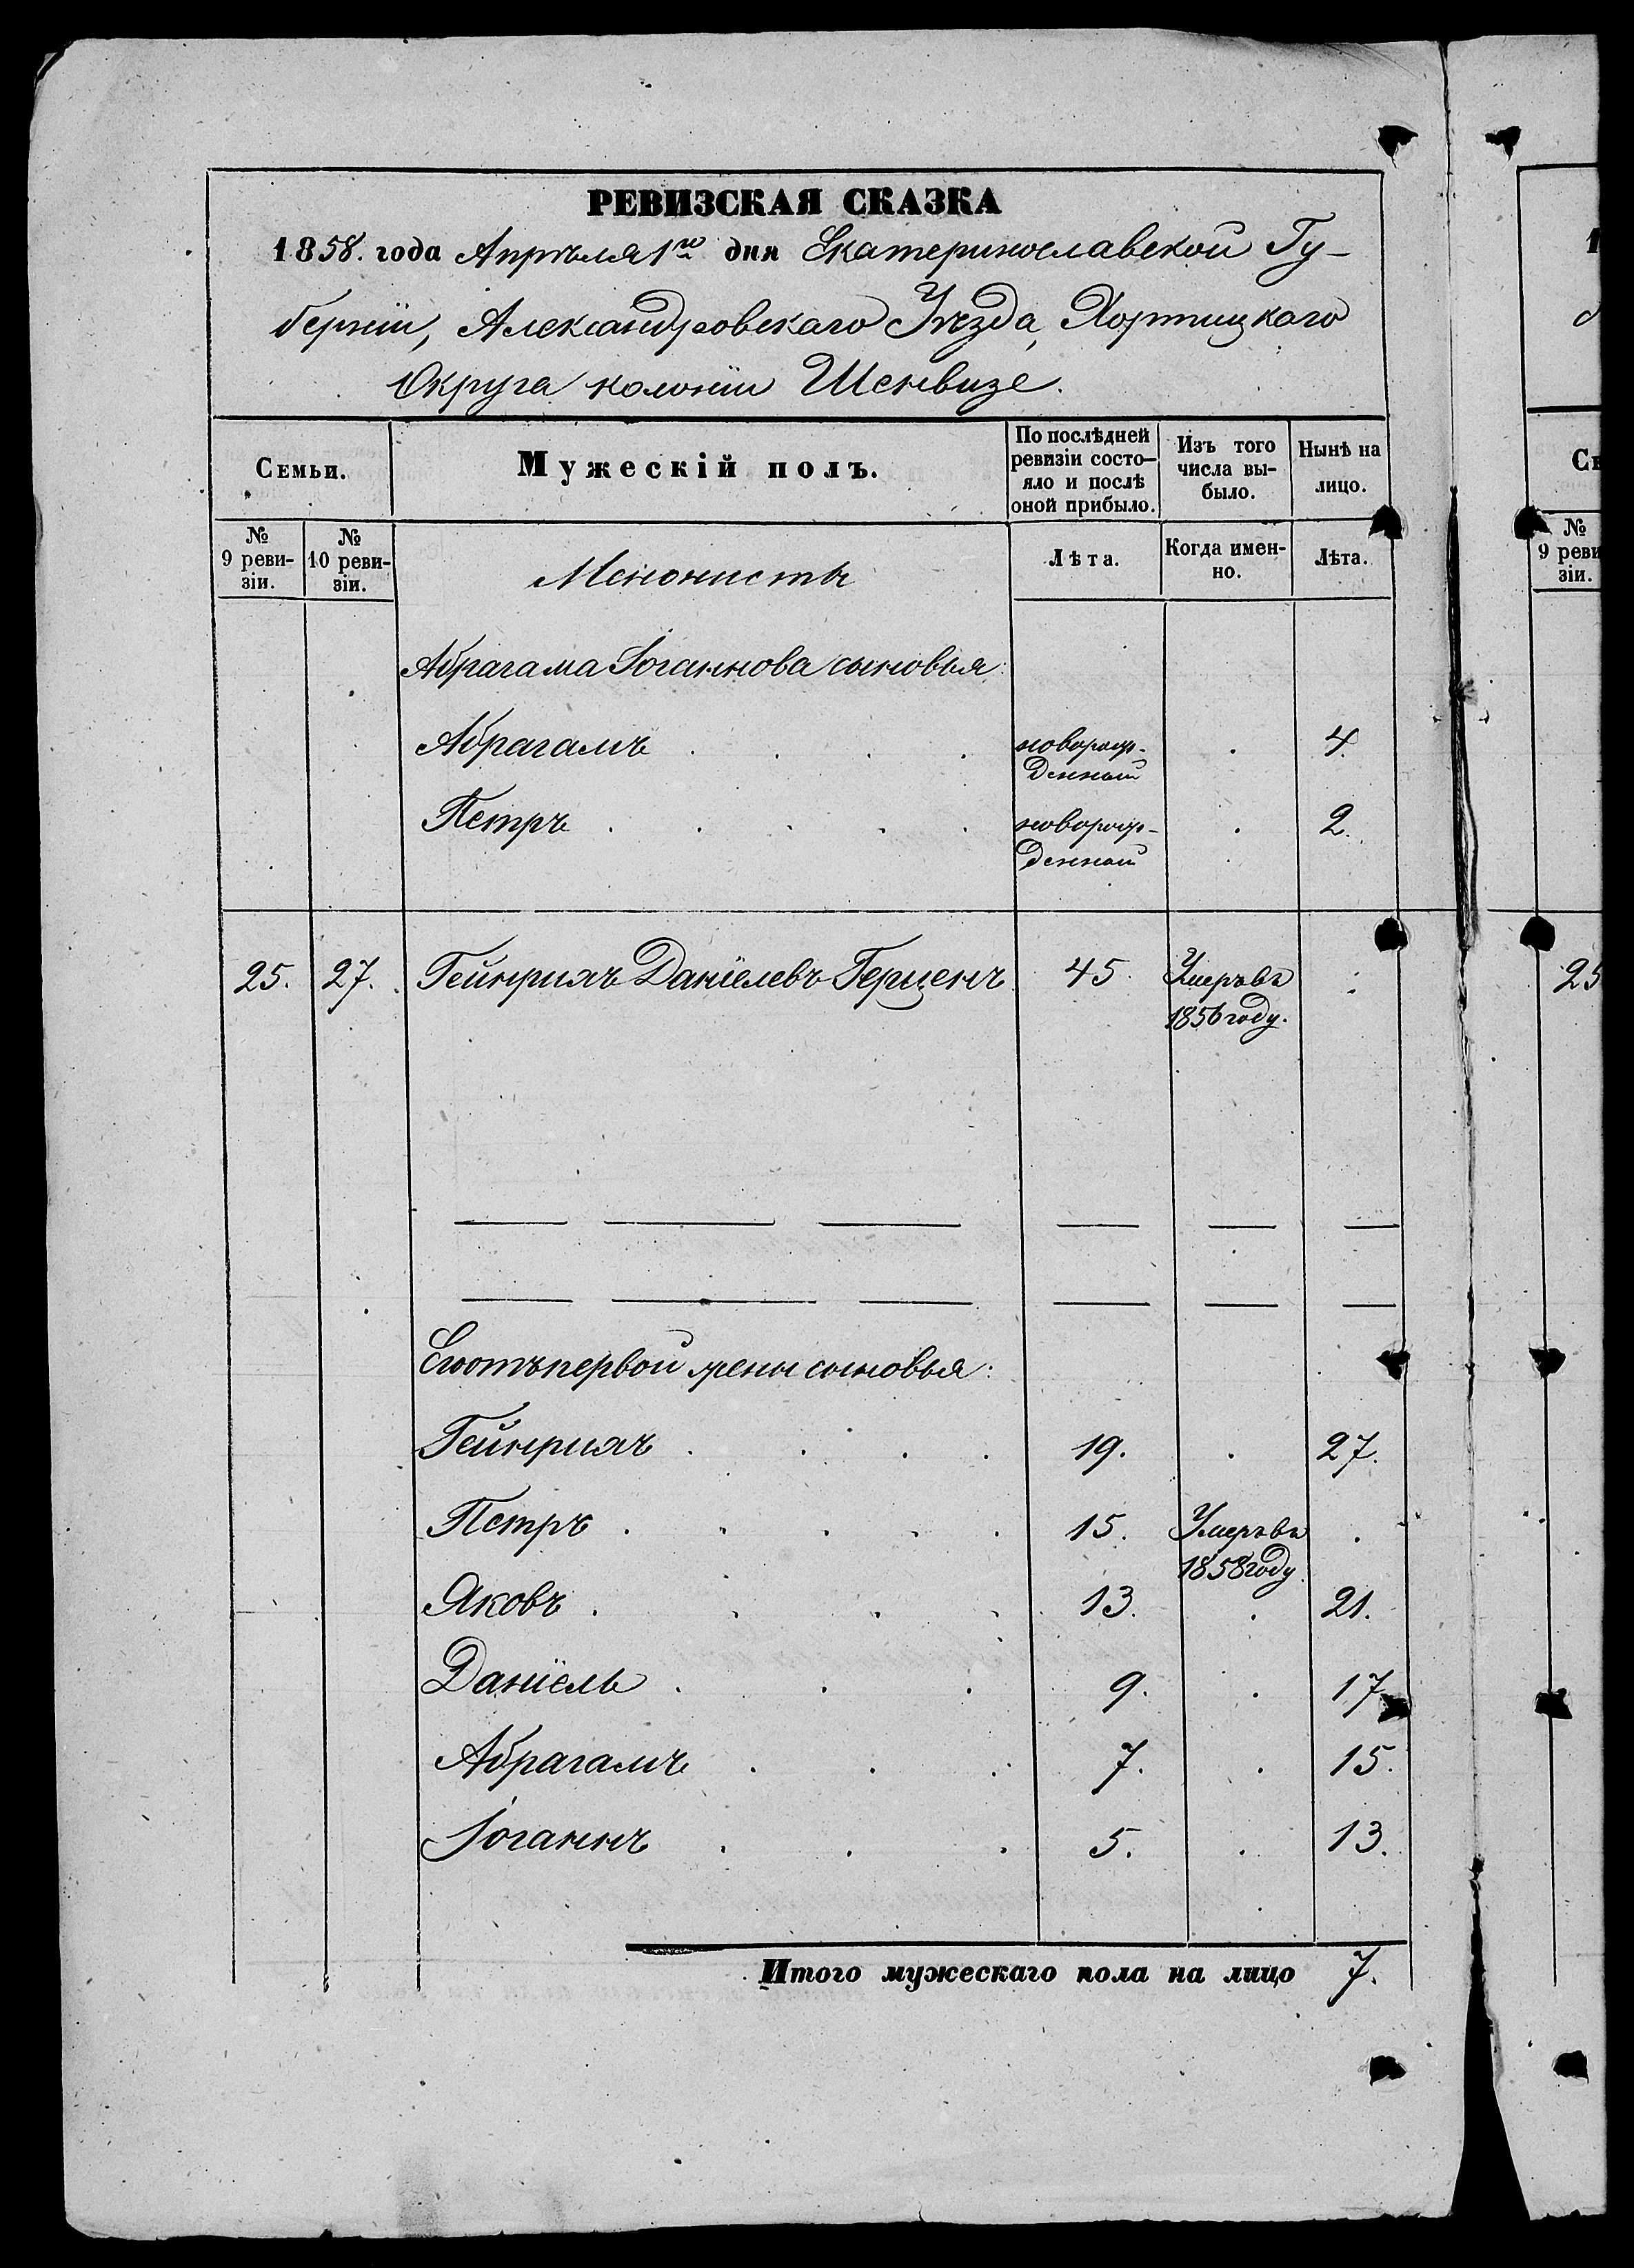 РЕВИЗСКАЯ СКАЗКА
1858. года Апрѣля 1го дня Екатеринославской Гу-
берніи, Александровскаго Уѣзда, Хортицкаго
Округа колоніи Шенвизе.
Семьи.
Мужескій полъ.
По послѣдней
ревизіи состо-
яло и послѣ
оной прибыло.
Изъ того
числа вы-
было.
Нынѣ на
лицо.
№
9 реви-
зіи.
№
10 реви-
зіи.
Менонисты
Лѣта.
Когда имен-
но.
Лѣта.
Абрагама Іоганнова сыновья:
Абрагамъ . . . . новорож- . 4.
денный
Петръ . . . . . новорож- . 2.
денный
25. 27. Гейнрихъ Даніелевъ Герценъ 45 Умеръ въ .
1856 году.
Его отъ первой жены сыновья:
Гейнрихъ . . . . 19. . 27.
Петръ . . . . . 15. Умеръ въ .
1858 году
Яковъ . . . . 13. . 21.
Даніель . . . 9. . 17.
Абрагамъ . . . 7. . 15.
Іоганнъ . . . 5. . 13.
Итого мужескаго пола на лицо 7.
№
9 реви
зіи.
25